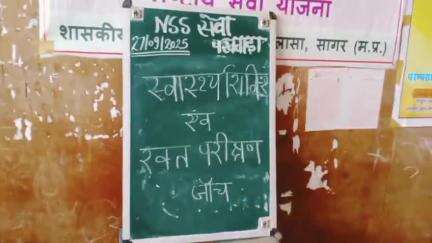 सेवा योजना
शासकीय
लासा, सागर (म.प्र.)
NSS सेवा
27/09/2025 पखवाड़ा
स्वास्थ्य शिविर
एवं
रक्त परीक्षण
जाँच